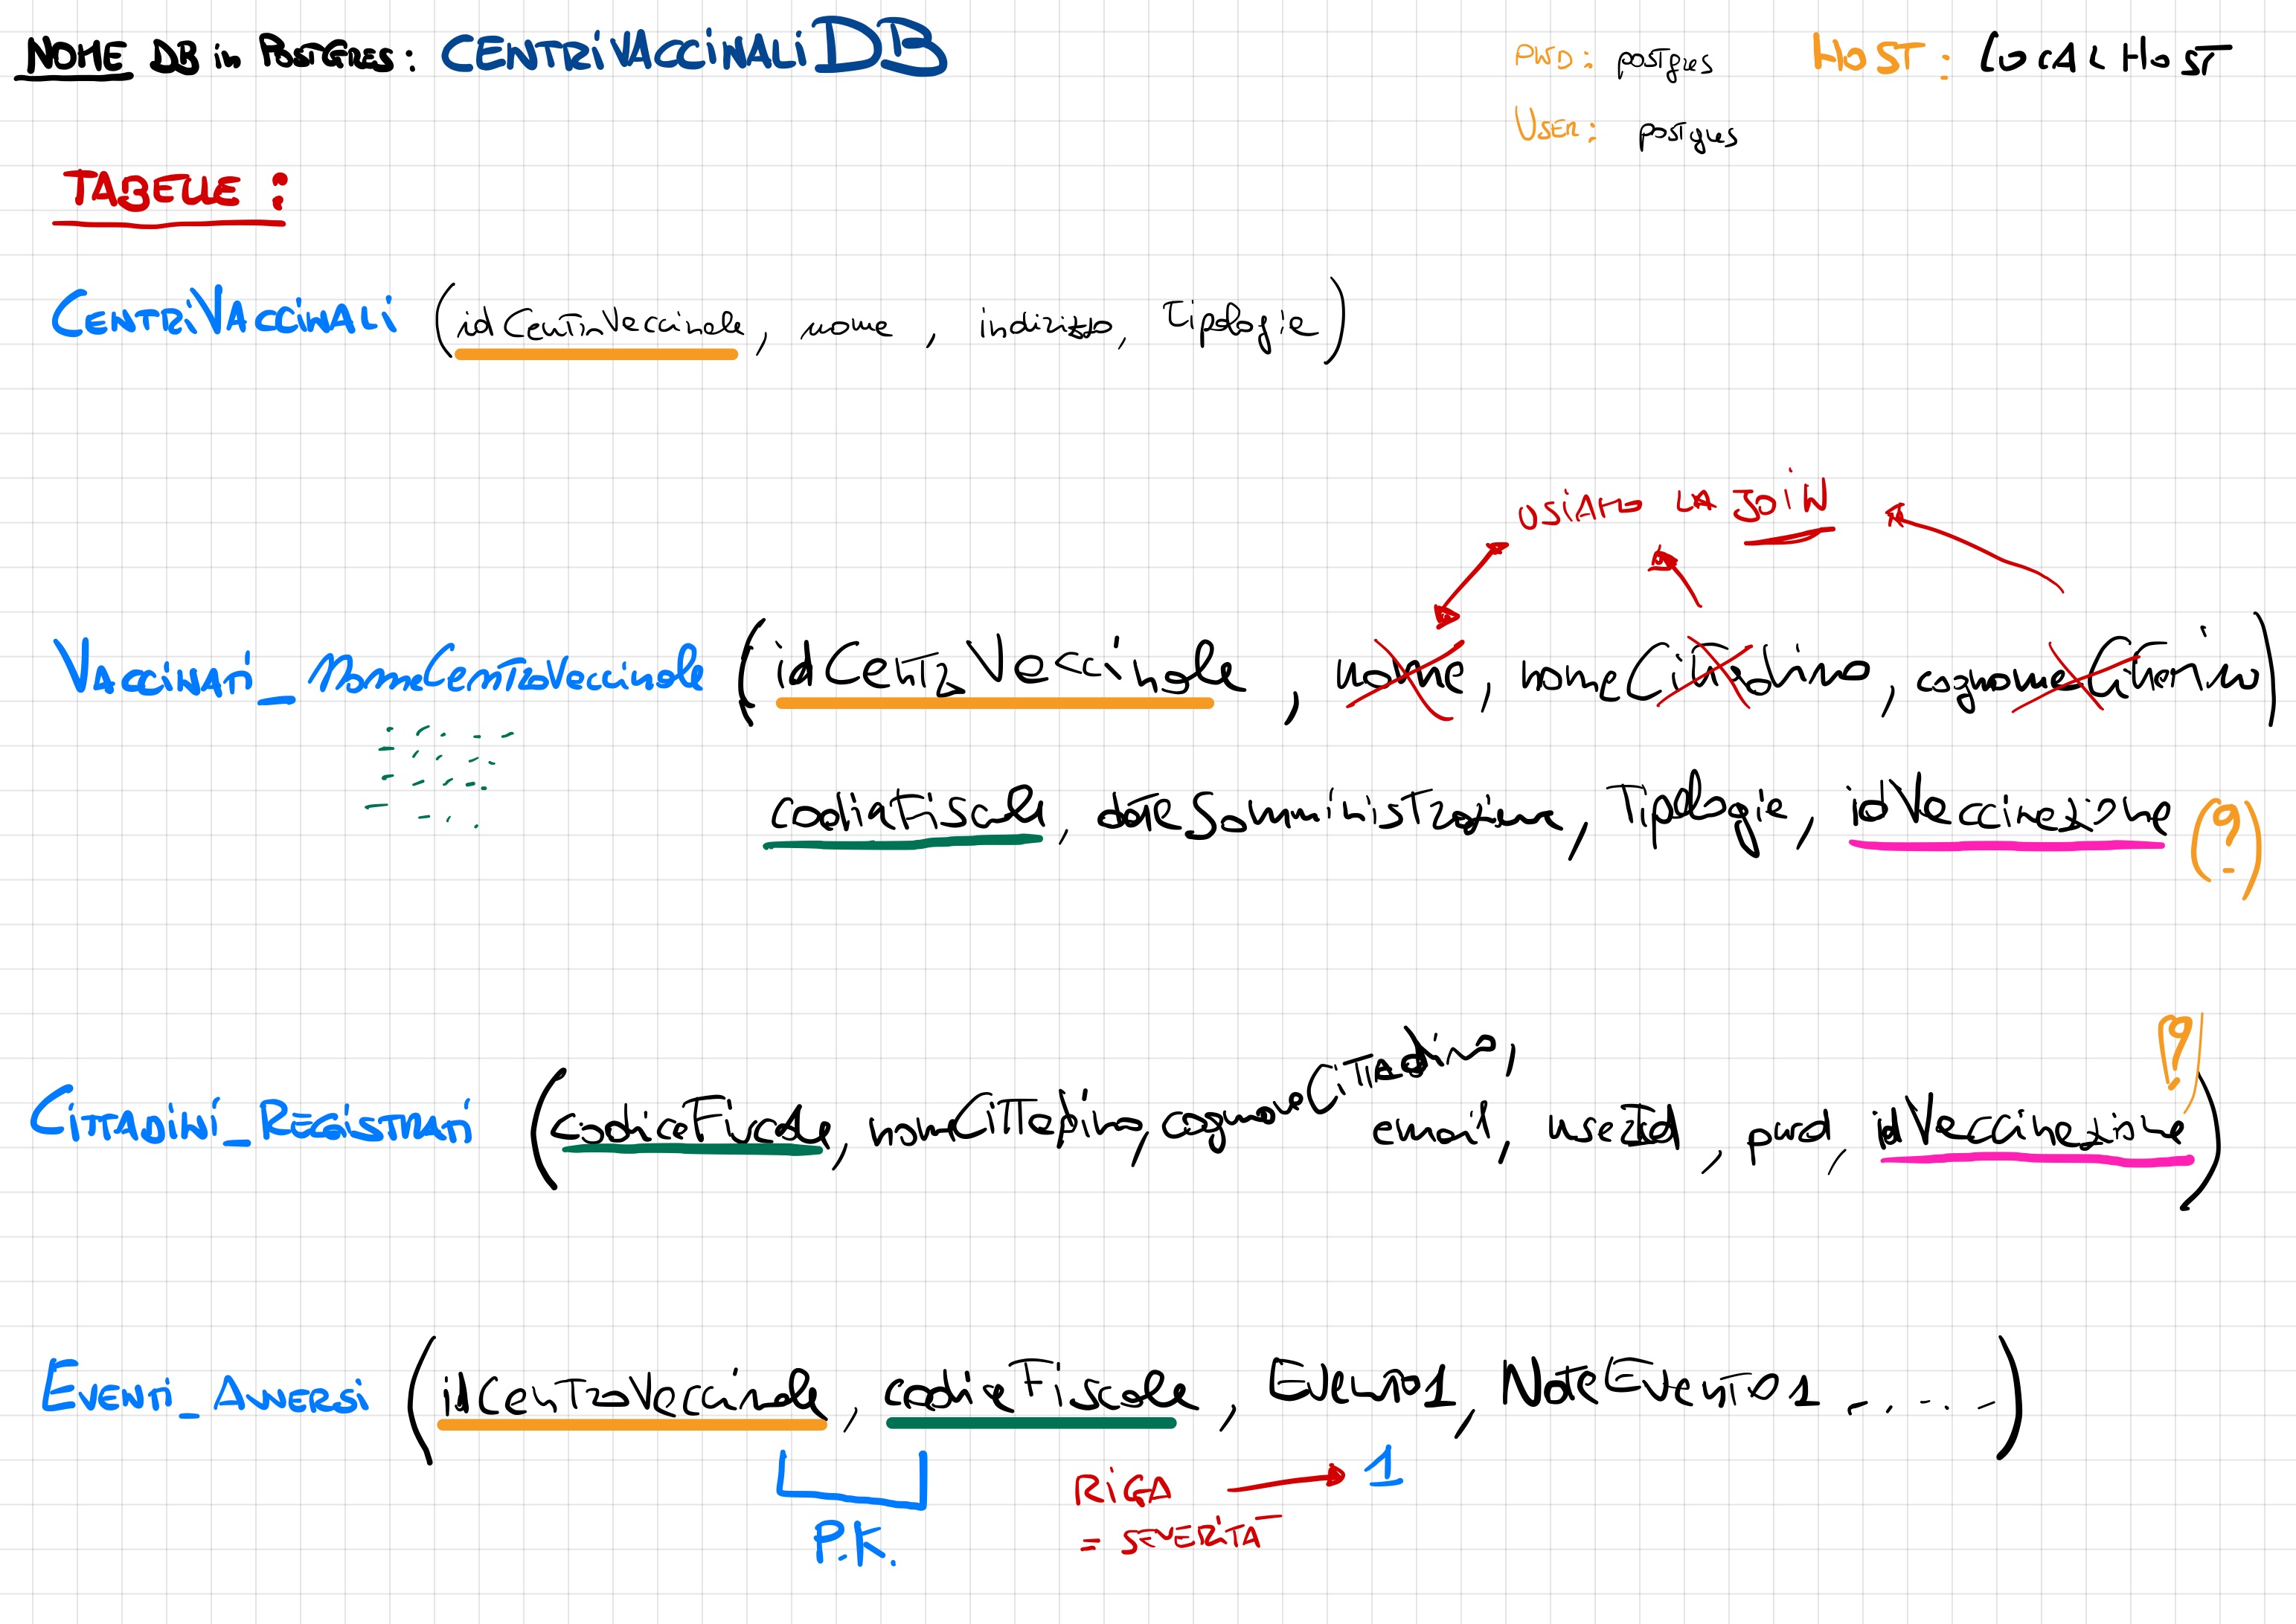 NOME DB in PostGres: CENTRIVACCINALI DB
PWD: postgres
HOST: LOCALHOST
USER: postgres
TABELLE:
CENTRIVACCINALI (idCentroVaccinale, nome, indirizzo, tipologia)
USIAMO LA JOIN
VACCINATI_NomeCentroVaccinale (idCentroVaccinale, nome, nomeCittadino, cognomeCittadino)
codiceFiscale, dataSomministrazione, Tipologia, idVaccinazione (?)
CITTADINI_REGISTRATI (codiceFiscale, nomeCittadino, cognomeCittadino, email, userId, pwd, idVaccinazione) ?
EVENTI_AVVERSI (idCentroVaccinale, codiceFiscale, Evento1, NoteEvento1 .....)
P.K.
RIGA → 1
= SEVERITA